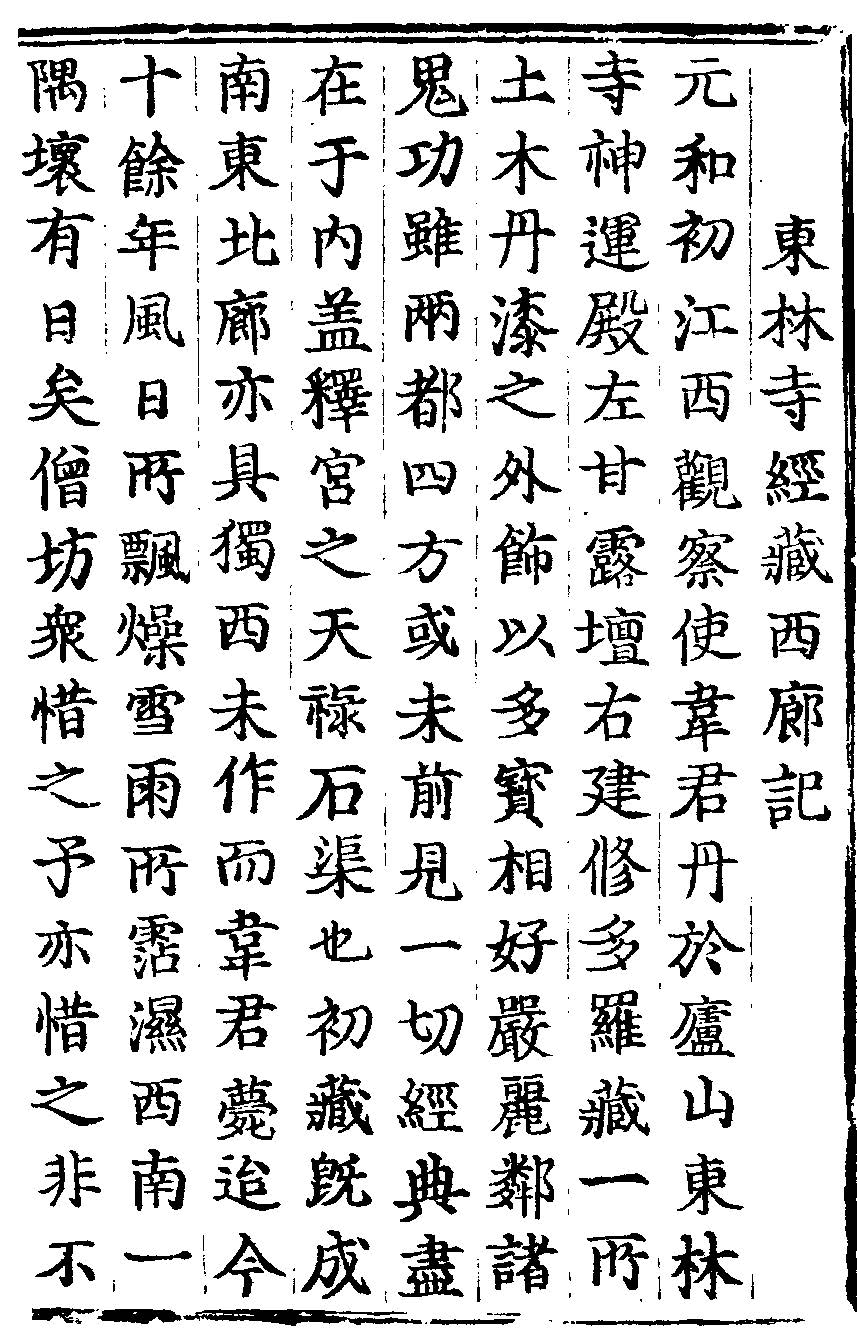 東林寺經藏西廊記
元和初江西觀察使韋君丹於廬山東林
寺神運殿左甘露壇右建修多羅藏一所
土木丹漆之外飾以多寶相好嚴麗鄰諸
鬼功雖兩都四方或未前見一切經典盡
在于內盖釋宮之天祿石渠也初藏既成
南東北廊亦具獨西未作而韋君薨迨今
十餘年風日所飄燥雪雨所霑濕西南一
隅壞有日矣僧坊眾惜之予亦惜之非不